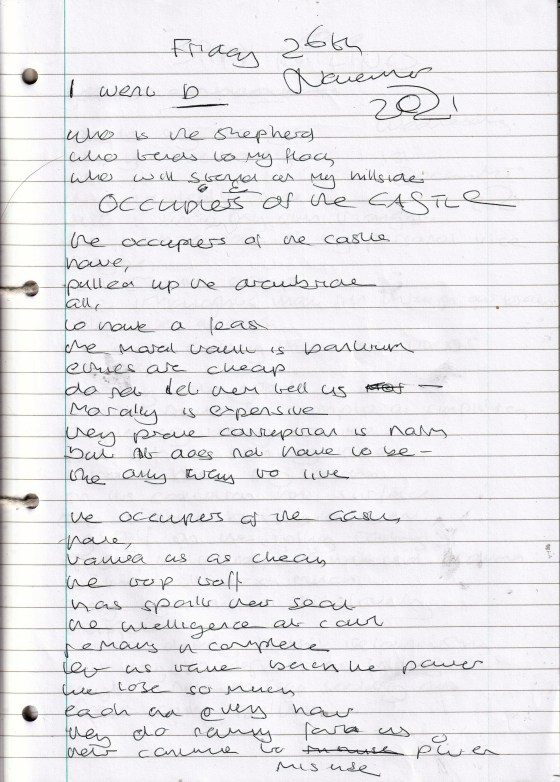 Friday 26th
November
I went to
2021
who is the shepherd
who tends to my flock
who will stand at my hillside
OCCUPIERS of the CASTLE
the occupiers of the castle
have,
pulled up the drawbridge
all,
to have a feast
the moral vault is bankrupt
ethics are cheap
do not let them tell us —
Morality is expensive
they prove corruption is
but it does not have to be –
the only way to live
the occupiers of the castle,
have,
valued us as cheap,
the top
has spoilt their seat
the intelligence at court
remains incomplete
let us take back the power
we lose so much
each and every hour
they do
their to power
misuse